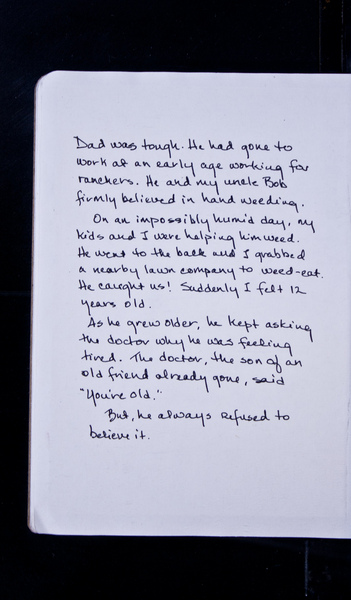 Dad was tough. He had gone to
work at an early age working for
ranchers. He and my uncle Bob
firmly believed in hand weeding.
On an impossibly humid day, my
kids and I were helping him weed.
He went to the back and I grabbed
a nearby lawn company to weed-eat.
He caught us! Suddenly I felt 12
years old.
As he grew older, he kept asking
the doctor why he was feeling
tired. The doctor, the son of an
old friend already gone, said
"You're old."
But, he always refused to
believe it.